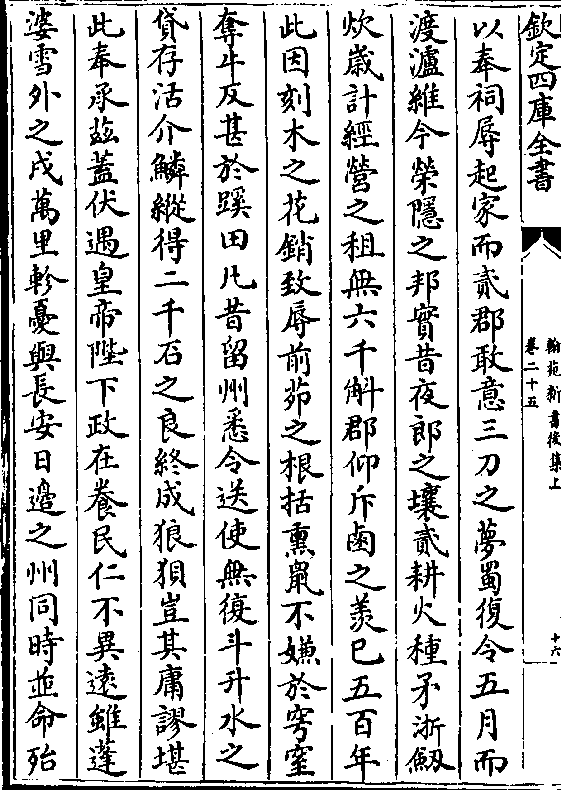 欽定四庫全書
翰苑新書後集上
卷二十五
十六
以奉祠辱起家而貳郡敢意三刀之夢蜀復令五月而
渡瀘維今榮隱之邦實昔夜郎之壤貳耕火種矛淅劔
炊歲計經營之租無六千斛郡仰斥鹵之羨已五百年
此因刻木之花銷致辱前茆之根括熏鼠不嫌於穹窒
奪牛反甚於蹊田凡昔留州悉令送使無復斗升水之
貸存活介鱗縱得二千石之良終成狼狽豈其庸謬堪
此奉承兹蓋伏遇皇帝陛下政在養民仁不異遠雖蓬
婆雪外之戍萬里軫憂與長安日邉之州同時並命殆